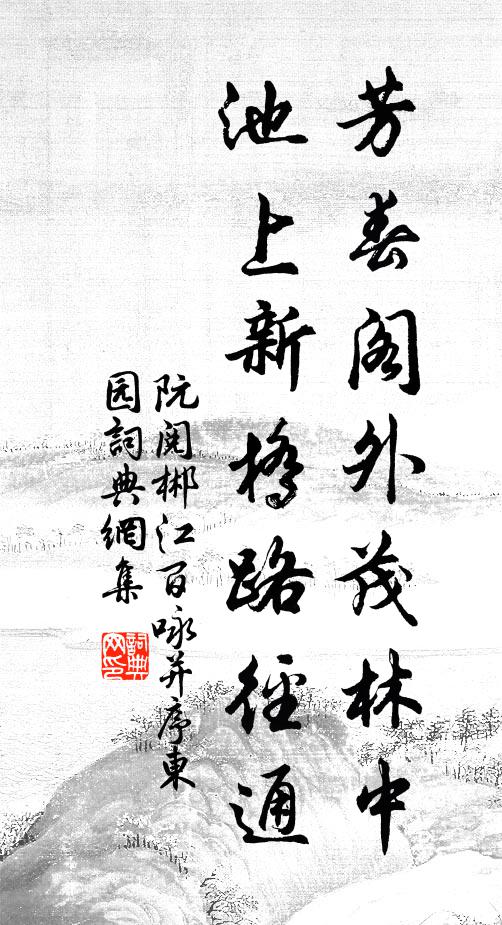 芳春阁外茂林中
池上新桥路径通
阮阅郴江百咏并序東
园詞典網集
詞典网印